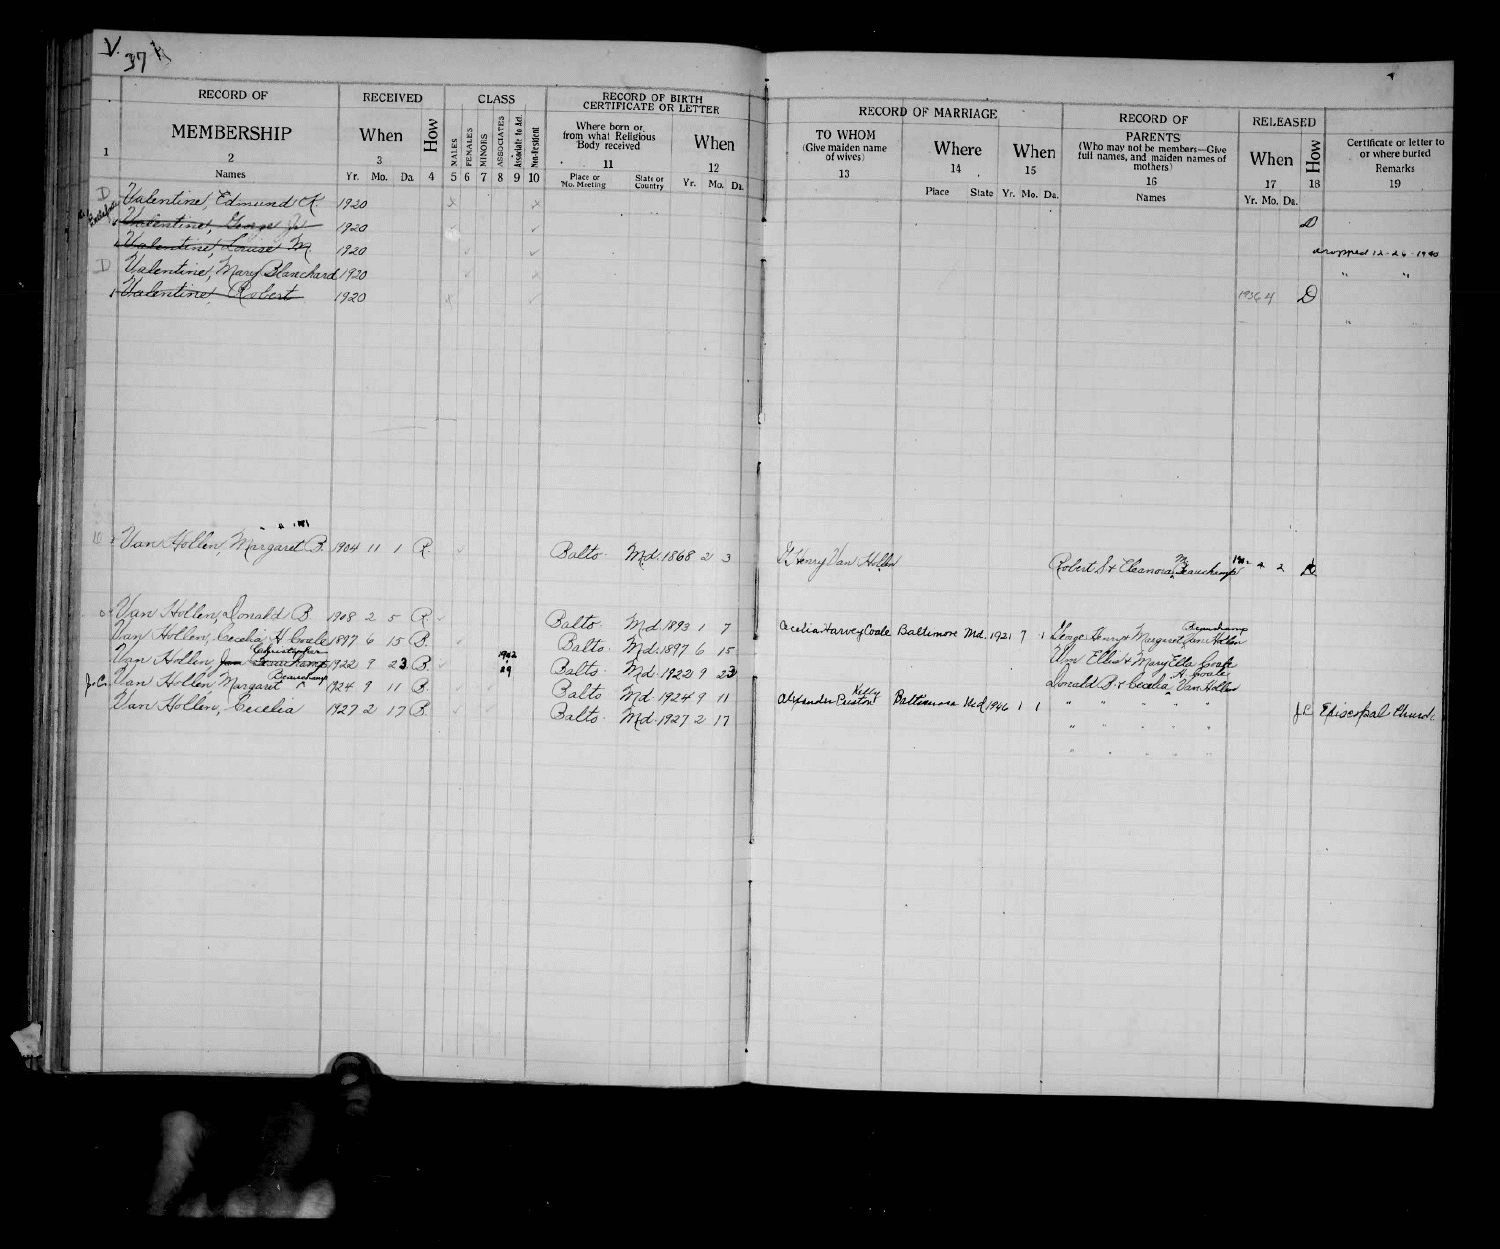 V.
37
RECORD OF
MEMBERSHIP
RECEIVED
When
How
CLASS
MALES
FEMALES
MINORS
ASSOCIATES
Associate to Act.
Non-Resident
RECORD OF BIRTH
CERTIFICATE OR LETTER
Where born or
from what Religious
Body received
When
RECORD OF MARRIAGE
TO WHOM
(Give maiden name
of wives)
Where
When
RECORD OF
PARENTS
(Who may not be members—Give
full names, and maiden names of
mothers)
RELEASED
When
How
Certificate or letter to
or where buried
Remarks
1 2 3 4 5 6 7 8 9 10 11 12 13 14 15 16 17 18 19
Names Yr. Mo. Da. Place or Mo. Meeting State or Country Yr. Mo. Da. Place State Yr. Mo. Da. Names Yr. Mo. Da.
D Valentine, Edmund K 1920 x x
Valentine, George Jr 1920 D
Valentine, Louise M. 1920 dropped 12-26-1940
D Valentine, Mary Blanchard 1920 " "
Valentine, Robert 1920 x 1936 4 D
"
Van Hollen, Margaret B. 1904 11 1 R. Balto. Md. 1868 2 3 G Henry Van Hollen Robert S & Eleanora M. Beauchamp 4 2
Van Hollen, Donald B 1908 2 5 R Balto. Md. 1893 1 7 Cecelia Harvey Coale Baltimore Md. 1921 7 1 George Henry & Margaret Beauchamp Van Hollen
Van Hollen, Cecelia H Coale 1897 6 15 B. Balto. Md. 1897 6 15 Wm Ellis & Mary Ella Coale
Van Hollen, Christopher Beauchamp 1922 9 23 B 1942 Balto. Md. 1922 9 23 Donald B & Cecelia H Coale Van Hollen
J.C. Van Hollen, Margaret Beauchamp 1924 9 11 B. Balto Md. 1924 9 11 Alexander Preston Kelly Baltimore Md 1946 1 1 " " " " " J.C. Episcopal Church
Van Hollen, Cecelia 1927 2 17 B Balto. Md. 1927 2 17 " " " " "
" " " " "